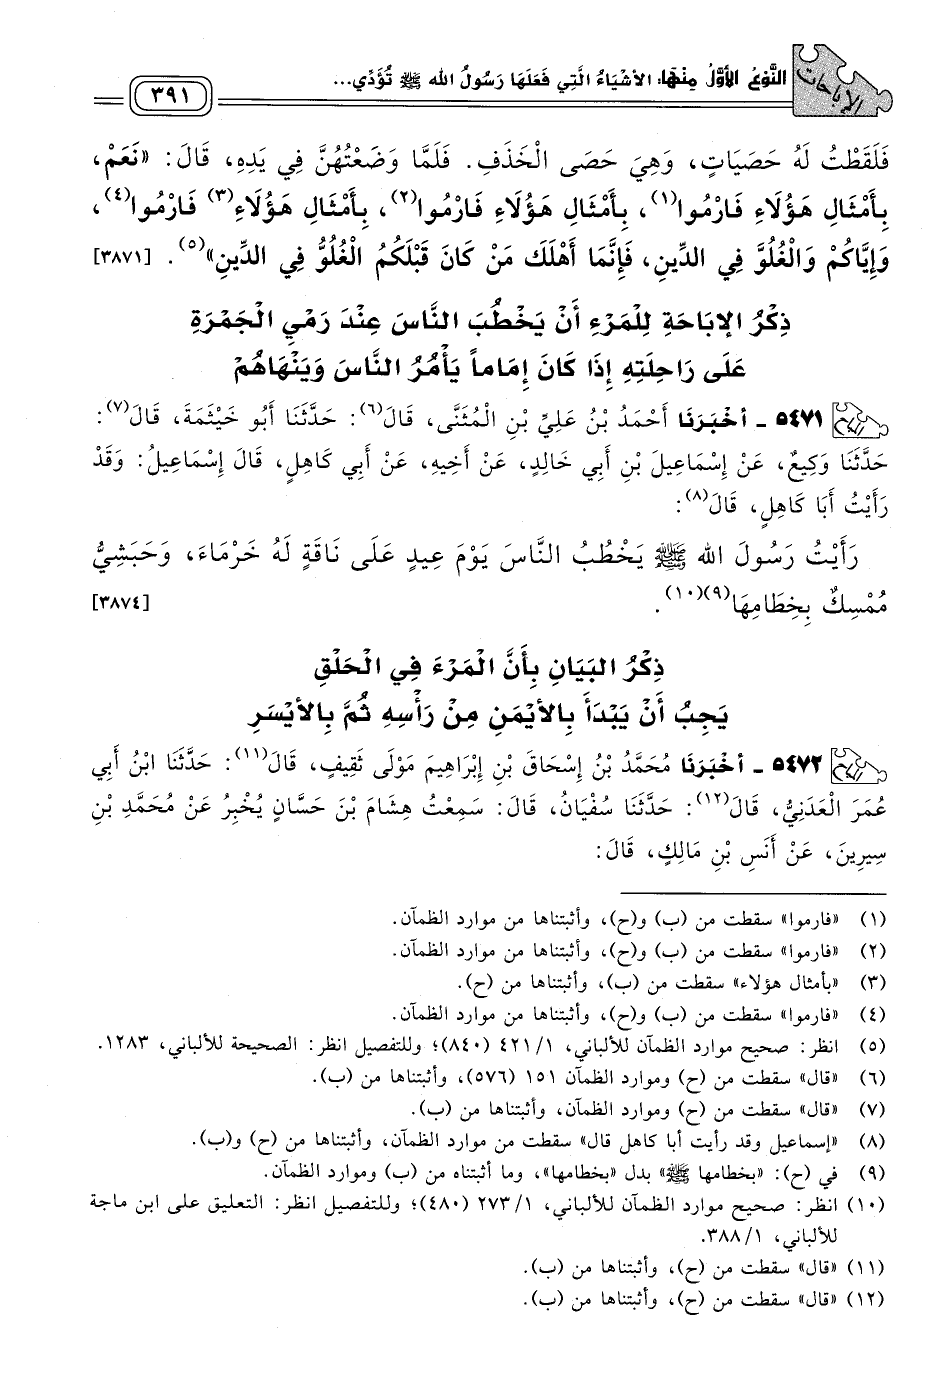 الإباحات
النَّوْعُ الأوَّلُ مِنْهَا: الأَشْيَاءُ الَّتِي فَعَلَهَا رَسُولُ الله ﷺ تُؤَدِّي...
٣٩١
فَلَقَطْتُ لَهُ حَصَيَاتٍ، وَهِيَ حَصَى الْخَذَفِ. فَلَمَّا وَضَعْتُهُنَّ فِي يَدِهِ، قَالَ: «نَعَمْ،
بِأَمْثَالِ هَؤُلَاءِ فَارْمُوا(١)، بِأَمْثَالِ هَؤُلَاءِ فَارْمُوا(٢)، بِأَمْثَالِ هَؤُلَاءِ(٣) فَارْمُوا(٤)،
وَإِيَّاكُمْ وَالْغُلُوَّ فِي الدِّينِ، فَإِنَّمَا أَهْلَكَ مَنْ كَانَ قَبْلَكُمُ الْغُلُوُّ فِي الدِّينِ»(٥). [٣٨٧١]
ذِكْرُ الإبَاحَةِ لِلْمَرْءِ أَنْ يَخْطُبَ النَّاسَ عِنْدَ رَمْيِ الْجَمْرَةِ
عَلَى رَاحِلَتِهِ إِذَا كَانَ إِمَاماً يَأْمُرُ النَّاسَ وَيَنْهَاهُمْ
٥٤٧١ - أَخْبَرَنَا أَحْمَدُ بْنُ عَلِيِّ بْنِ الْمُثَنَّى، قَالَ(٦): حَدَّثَنَا أَبُو خَيْثَمَةَ، قَالَ(٧):
حَدَّثَنَا وَكِيعٌ، عَنْ إِسْمَاعِيلَ بْنِ أَبِي خَالِدٍ، عَنْ أَخِيهِ، عَنْ أَبِي كَاهِلٍ، قَالَ إِسْمَاعِيلُ: وَقَدْ
رَأَيْتُ أَبَا كَاهِلٍ، قَالَ(٨):
رَأَيْتُ رَسُولَ الله ﷺ يَخْطُبُ النَّاسَ يَوْمَ عِيدٍ عَلَى نَاقَةٍ لَهُ خَرْمَاءَ، وَحَبَشِيٌّ
مُمْسِكٌ بِخِطَامِهَا(٩)(١٠). [٣٨٧٤]
ذِكْرُ البَيَانِ بِأَنَّ الْمَرْءَ فِي الْحَلْقِ
يَجِبُ أَنْ يَبْدَأَ بِالأَيْمَنِ مِنْ رَأْسِهِ ثُمَّ بِالأَيْسَرِ
٥٤٧٢ - أَخْبَرَنَا مُحَمَّدُ بْنُ إِسْحَاقَ بْنِ إِبْرَاهِيمَ مَوْلَى ثَقِيفٍ، قَالَ(١١): حَدَّثَنَا ابْنُ أَبِي
عُمَرَ الْعَدَنِيُّ، قَالَ(١٢): حَدَّثَنَا سُفْيَانُ، قَالَ: سَمِعْتُ هِشَامَ بْنَ حَسَّانٍ يُخْبِرُ عَنْ مُحَمَّدِ بْنِ
سِيرِينَ، عَنْ أَنَسِ بْنِ مَالِكٍ، قَالَ:
(١) «فارموا» سقطت من (ب) و(ح)، وأثبتناها من موارد الظمآن.
(٢) «فارموا» سقطت من (ب) و(ح)، وأثبتناها من موارد الظمآن.
(٣) «بأمثال هؤلاء» سقطت من (ب)، وأثبتناها من (ح).
(٤) «فارموا» سقطت من (ب) و(ح)، وأثبتناها من موارد الظمآن.
(٥) انظر: صحيح موارد الظمآن للألباني، ٤٢١/١ (٨٤٠)؛ وللتفصيل انظر: الصحيحة للألباني، ١٢٨٣.
(٦) «قال» سقطت من (ح) وموارد الظمآن ١٥١ (٥٧٦)، وأثبتناها من (ب).
(٧) «قال» سقطت من (ح) وموارد الظمآن، وأثبتناها من (ب).
(٨) «إسماعيل وقد رأيت أبا كاهل قال» سقطت من موارد الظمآن، وأثبتناها من (ح) و(ب).
(٩) في (ح): «بخطامها ﷺ» بدل «بخطامها»، وما أثبتناه من (ب) وموارد الظمآن.
(١٠) انظر: صحيح موارد الظمآن للألباني، ٢٧٣/١ (٤٨٠)؛ وللتفصيل انظر: التعليق على ابن ماجة
للألباني، ٣٨٨/١.
(١١) «قال» سقطت من (ح)، وأثبتناها من (ب).
(١٢) «قال» سقطت من (ح)، وأثبتناها من (ب).